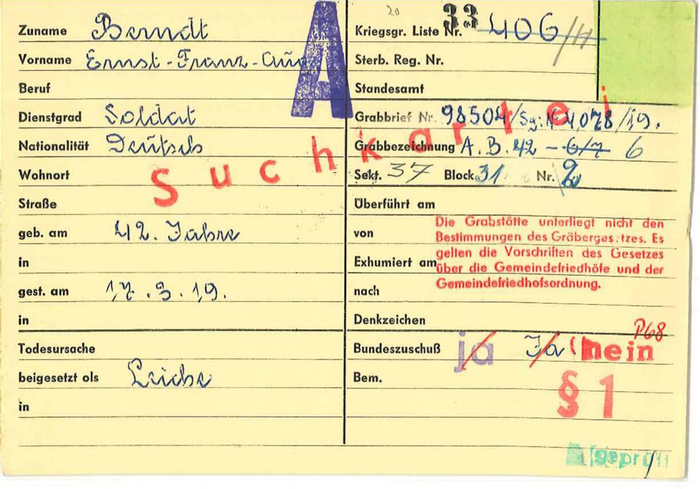 20
Zuname Berndt
Vorname Ernst-Franz-
Beruf
Dienstgrad Soldat
Nationalität Deutsch
Wohnort
Straße
geb. am 42. Jahre
in
gest. am 17.3.19.
in
Todesursache
beigesetzt als Leiche
in
A
Suchkartei
Kriegsgr. Liste Nr. 33 406/
Sterb. Reg. Nr.
Standesamt
Grabbrief Nr. 98504/Sg: 4078/19.
Grabbezeichnung A.B. 42 - 6/7 6
Sekt. 37 Block 31 Nr. 2
Überführt am
von
Exhumiert am
nach
Die Grabstätte unterliegt nicht den
Bestimmungen des Gräberges.tzes. Es
gelten die Vorschriften des Gesetzes
über die Gemeindefriedhöfe und der
Gemeindefriedhofsordnung.
Denkzeichen
P68
Bundeszuschuß ja Ja nein
Bem.
§ 1
geprüft